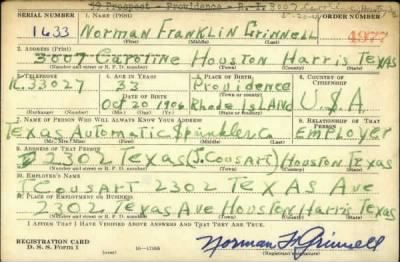 39 Prospect - Providence - R. I. 3007 Caroline
SERIAL NUMBER 1. NAME (Print) ORDER NUMBER
1633 Norman Franklin Grinnell 4977
(First) (Middle) (Last)
2. ADDRESS (Print)
3007 Caroline Houston Harris Texas
(Number and street or R. F. D. number) (Town) (County) (State)
3. TELEPHONE 4. AGE IN YEARS 5. PLACE OF BIRTH 6. COUNTRY OF CITIZENSHIP
33 Providence
DATE OF BIRTH (Town or county)
K.53027 Oct 20 1906 Rhode Island U.S.A.
(Exchange) (Number) (Mo.) (Day) (Yr.) (State or country)
7. NAME OF PERSON WHO WILL ALWAYS KNOW YOUR ADDRESS 8. RELATIONSHIP OF THAT PERSON
Texas Automatic Sprinkler Co Employer
(Mr., Mrs., Miss) (First) (Middle) (Last)
9. ADDRESS OF THAT PERSON
2302 Texas (J. Cousart) Houston Texas
(Number and street or R. F. D. number) (Town) (County) (State)
10. EMPLOYER'S NAME
J Cousart 2302 Texas Ave
11. PLACE OF EMPLOYMENT OR BUSINESS
2302 Texas Ave Houston Harris Texas
(Number and street or R. F. D. number) (Town) (County) (State)
I AFFIRM THAT I HAVE VERIFIED ABOVE ANSWERS AND THAT THEY ARE TRUE.
REGISTRATION CARD
D. S. S. FORM 1 16-17105 Norman F. Grinnell
(Registrant's signature)